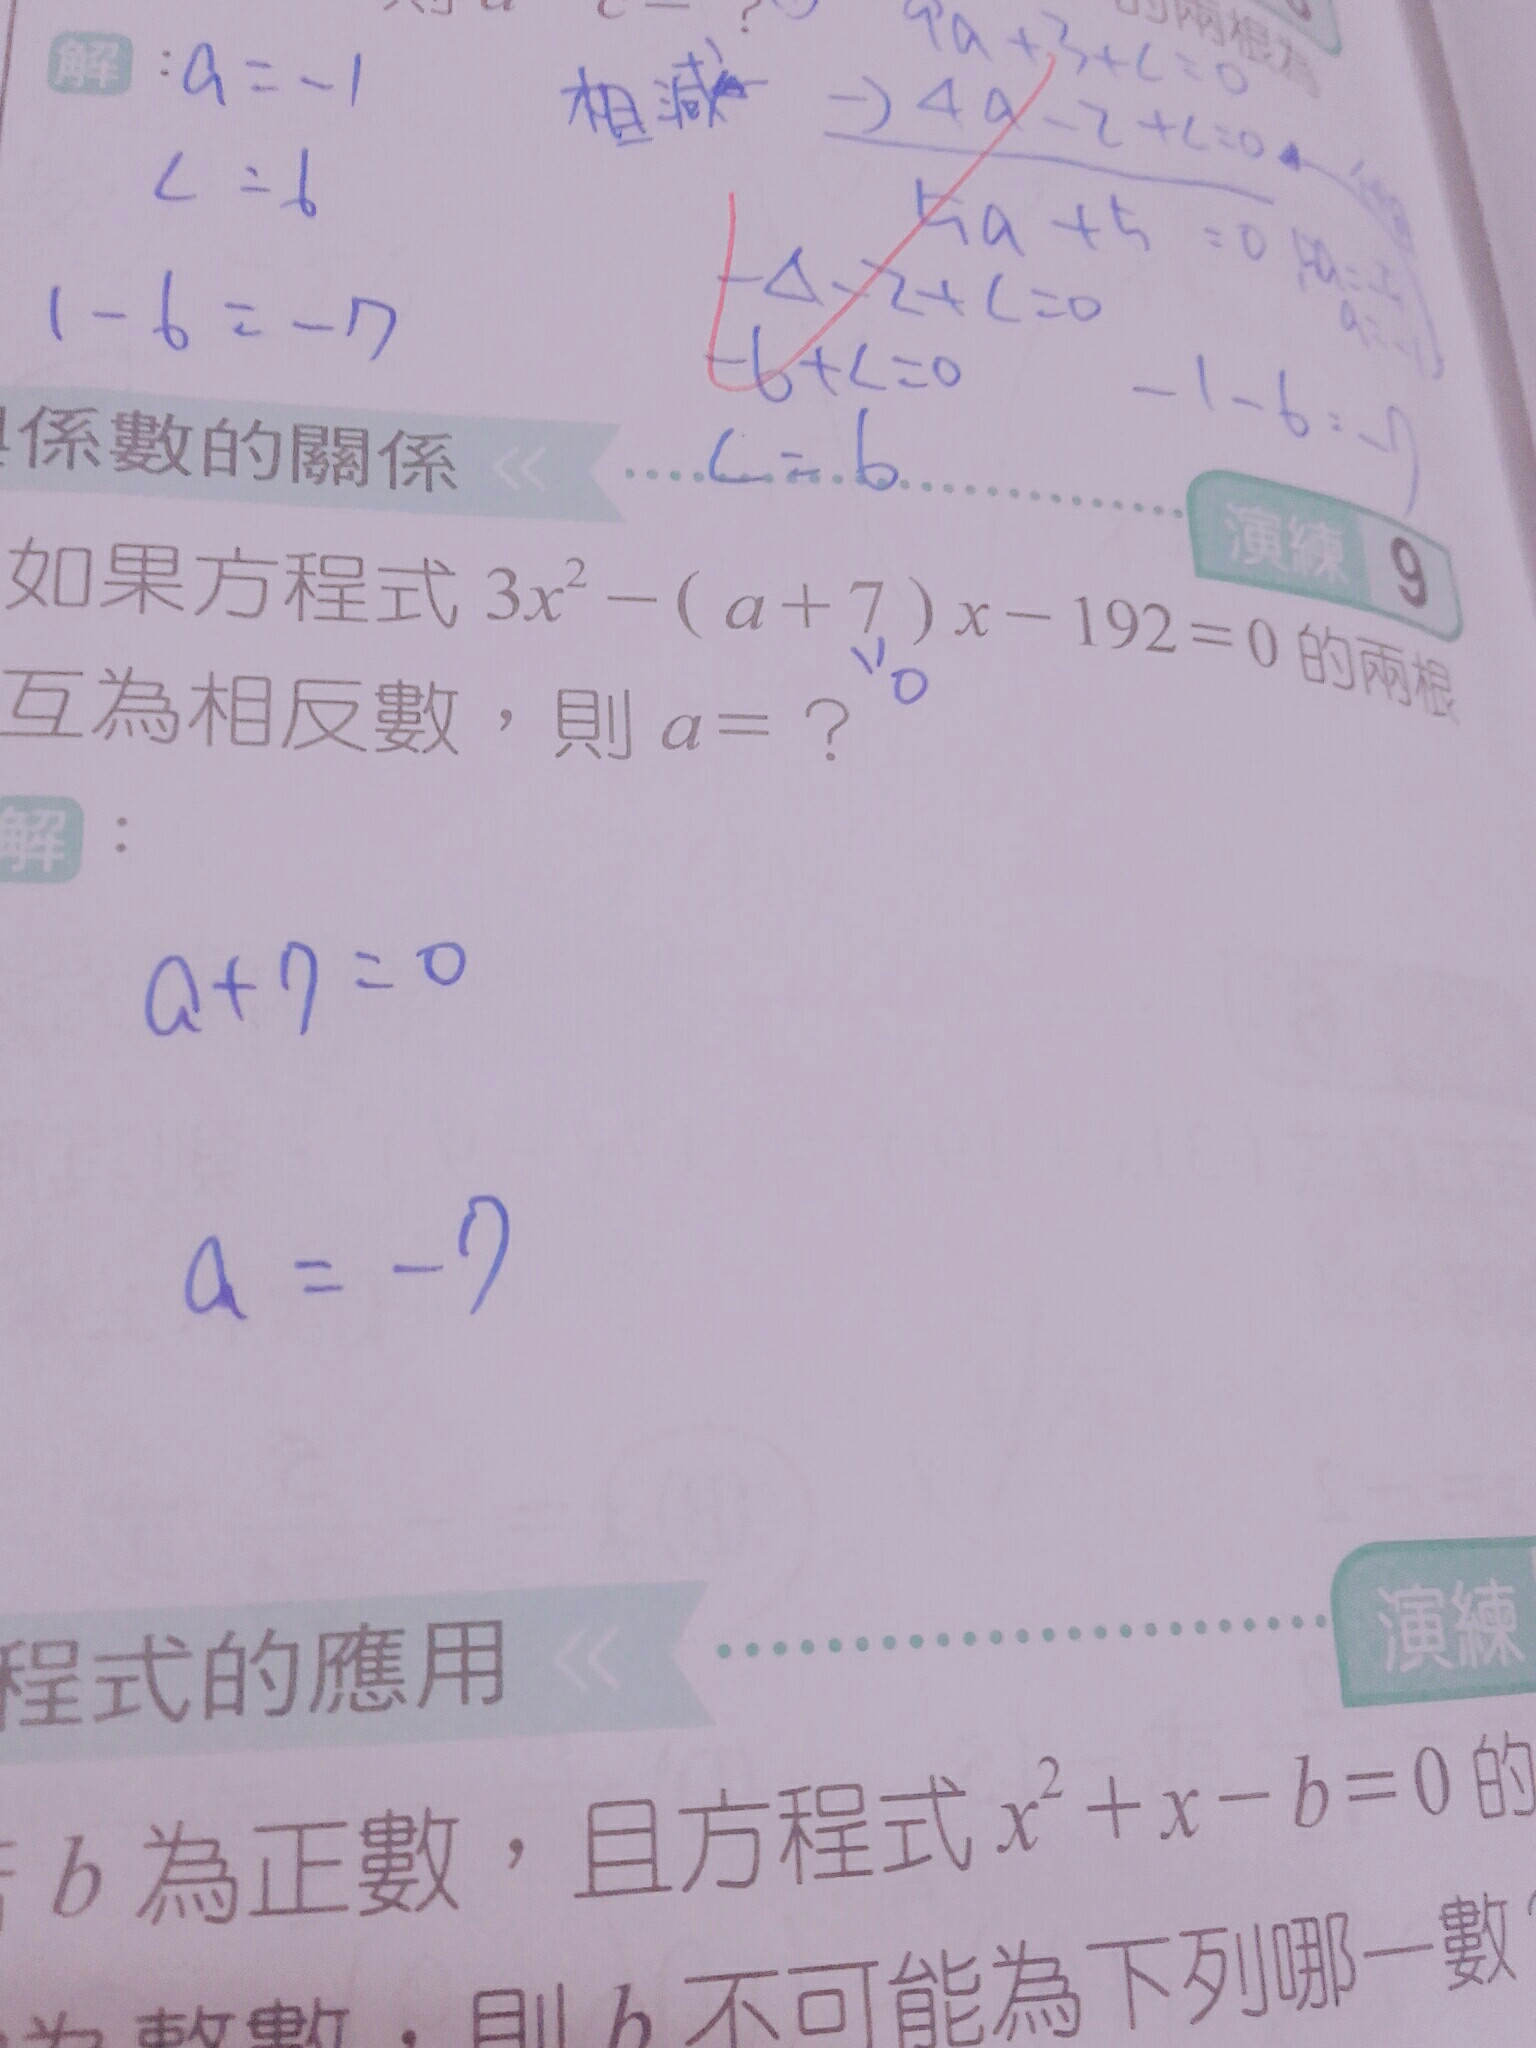 9a+3+c=0
的兩根為
解：a=-1
相減
-) 4a-2+c=0
c=6
5a+5=0
1-6=-7
-4-2+c=0
-6+c=0
-1-6=-7
c=6
係數的關係
演練 9
如果方程式 3x²-(a+7)x-192=0 的兩根
0
互為相反數，則 a=？
解：
a+7=0
a=-7
程式的應用
演練
b 為正數，且方程式 x²+x-b=0 的
為整數，則 b 不可能為下列哪一數？